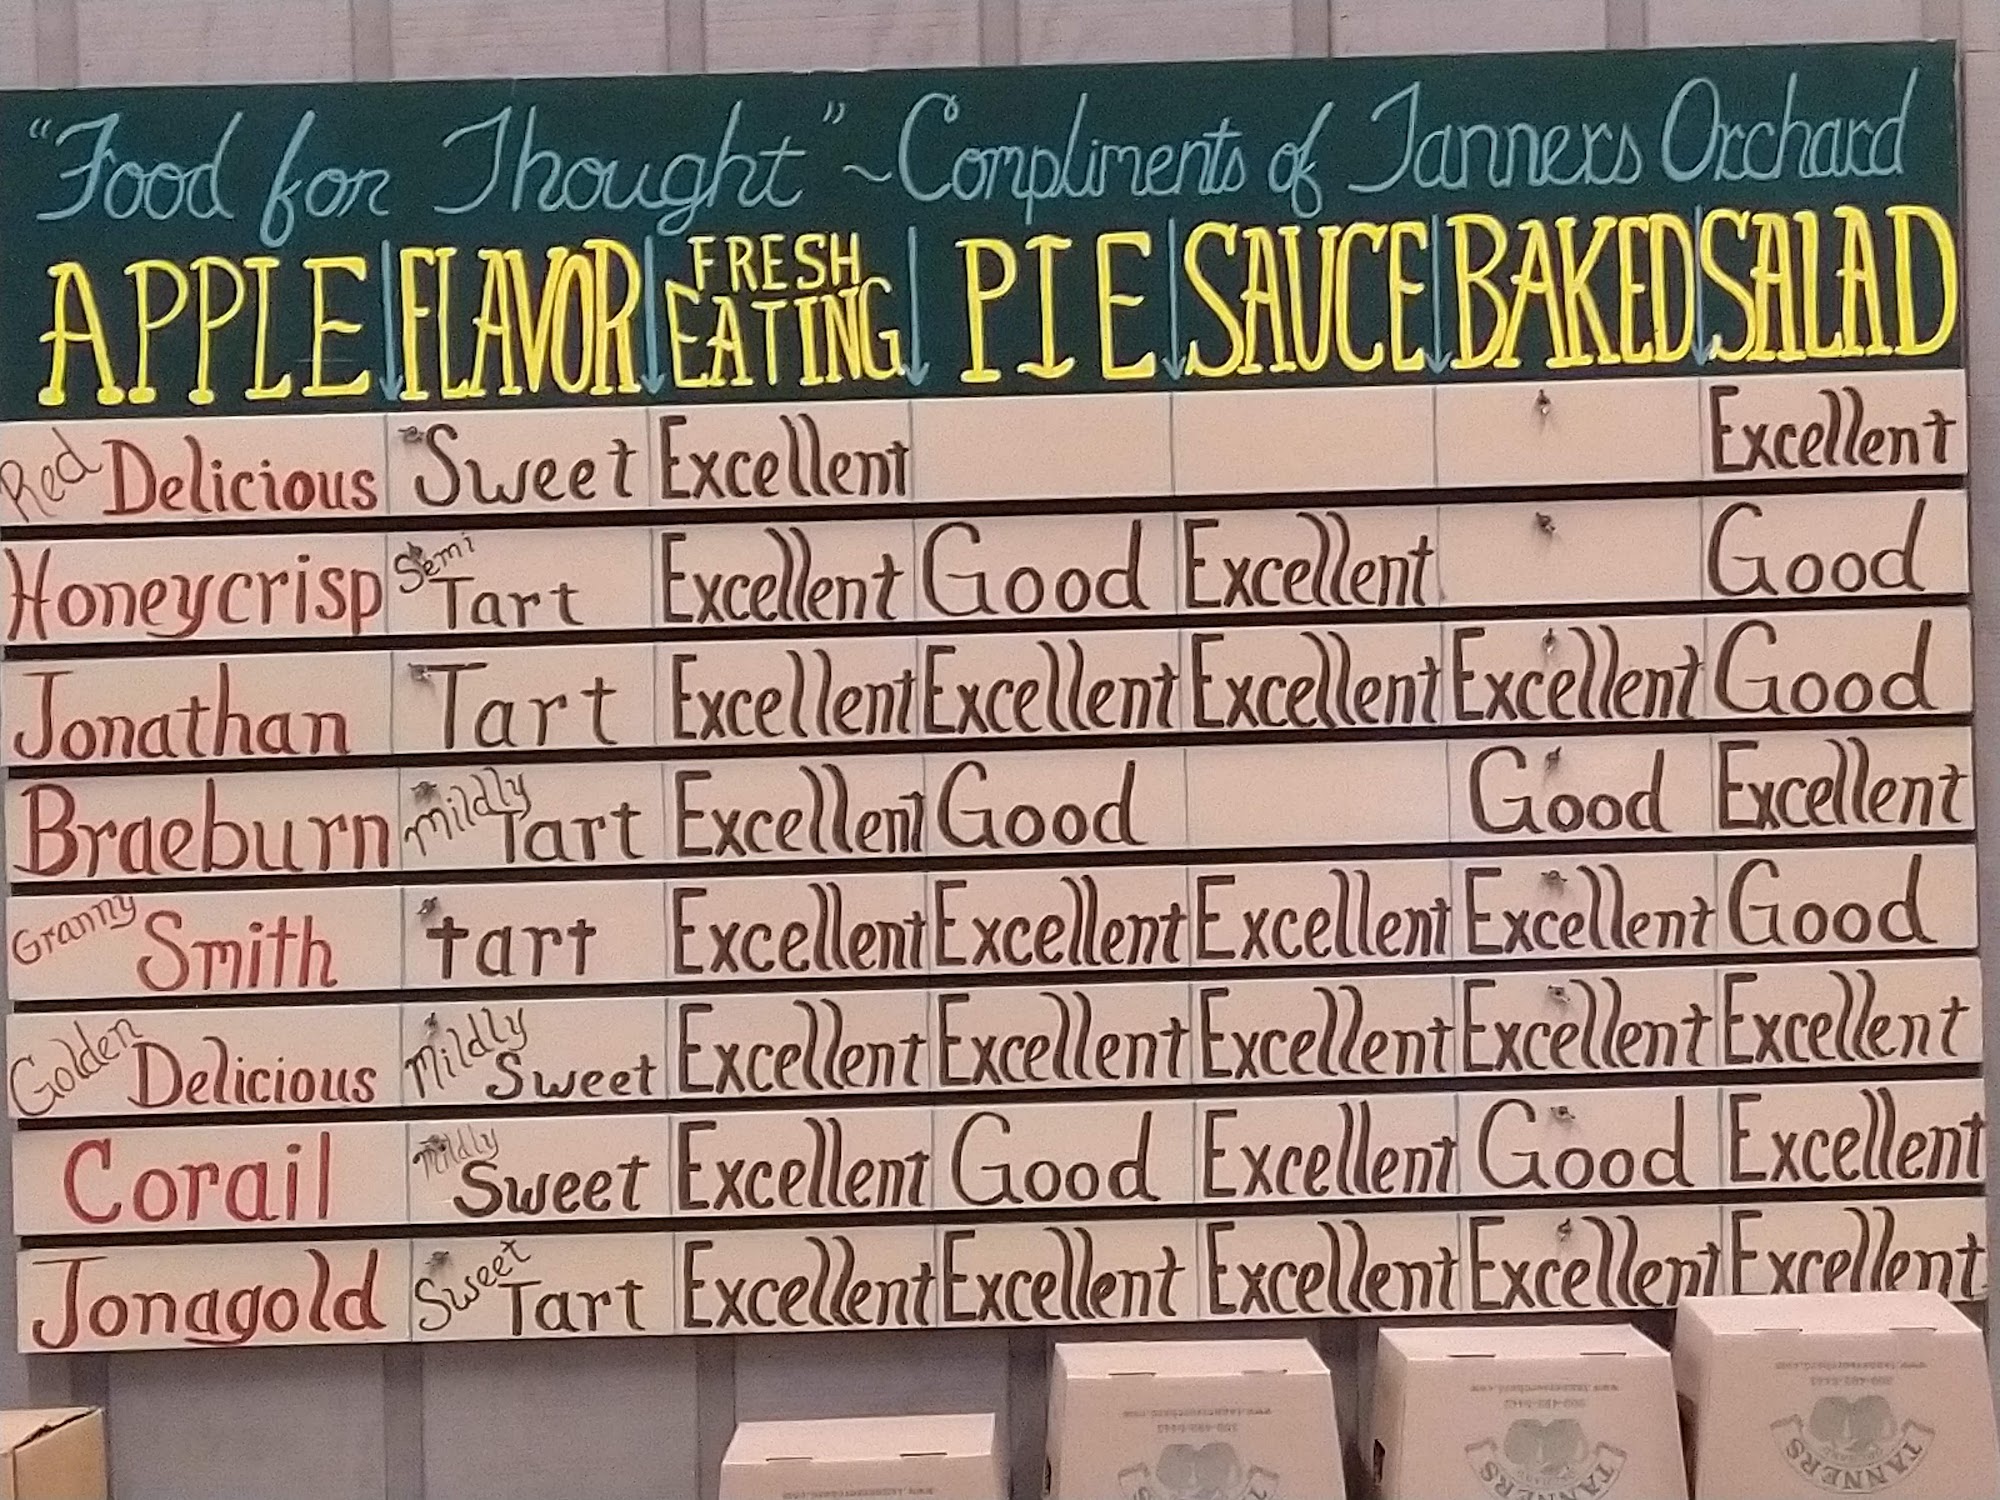 "Food for Thought" ~ Compliments of Tanners Orchard
APPLE FLAVOR FRESH EATING PIE SAUCE BAKED SALAD
Red Delicious Sweet Excellent Excellent
Honeycrisp Semi Tart Excellent Good Excellent Good
Jonathan Tart Excellent Excellent Excellent Excellent Good
Braeburn Mildly Tart Excellent Good Good Excellent
Granny Smith tart Excellent Excellent Excellent Excellent Good
Golden Delicious Mildly Sweet Excellent Excellent Excellent Excellent Excellent
Corail Mildly Sweet Excellent Good Excellent Good Excellent
Jonagold Sweet Tart Excellent Excellent Excellent Excellent Excellent
TANNERS
TANNERS